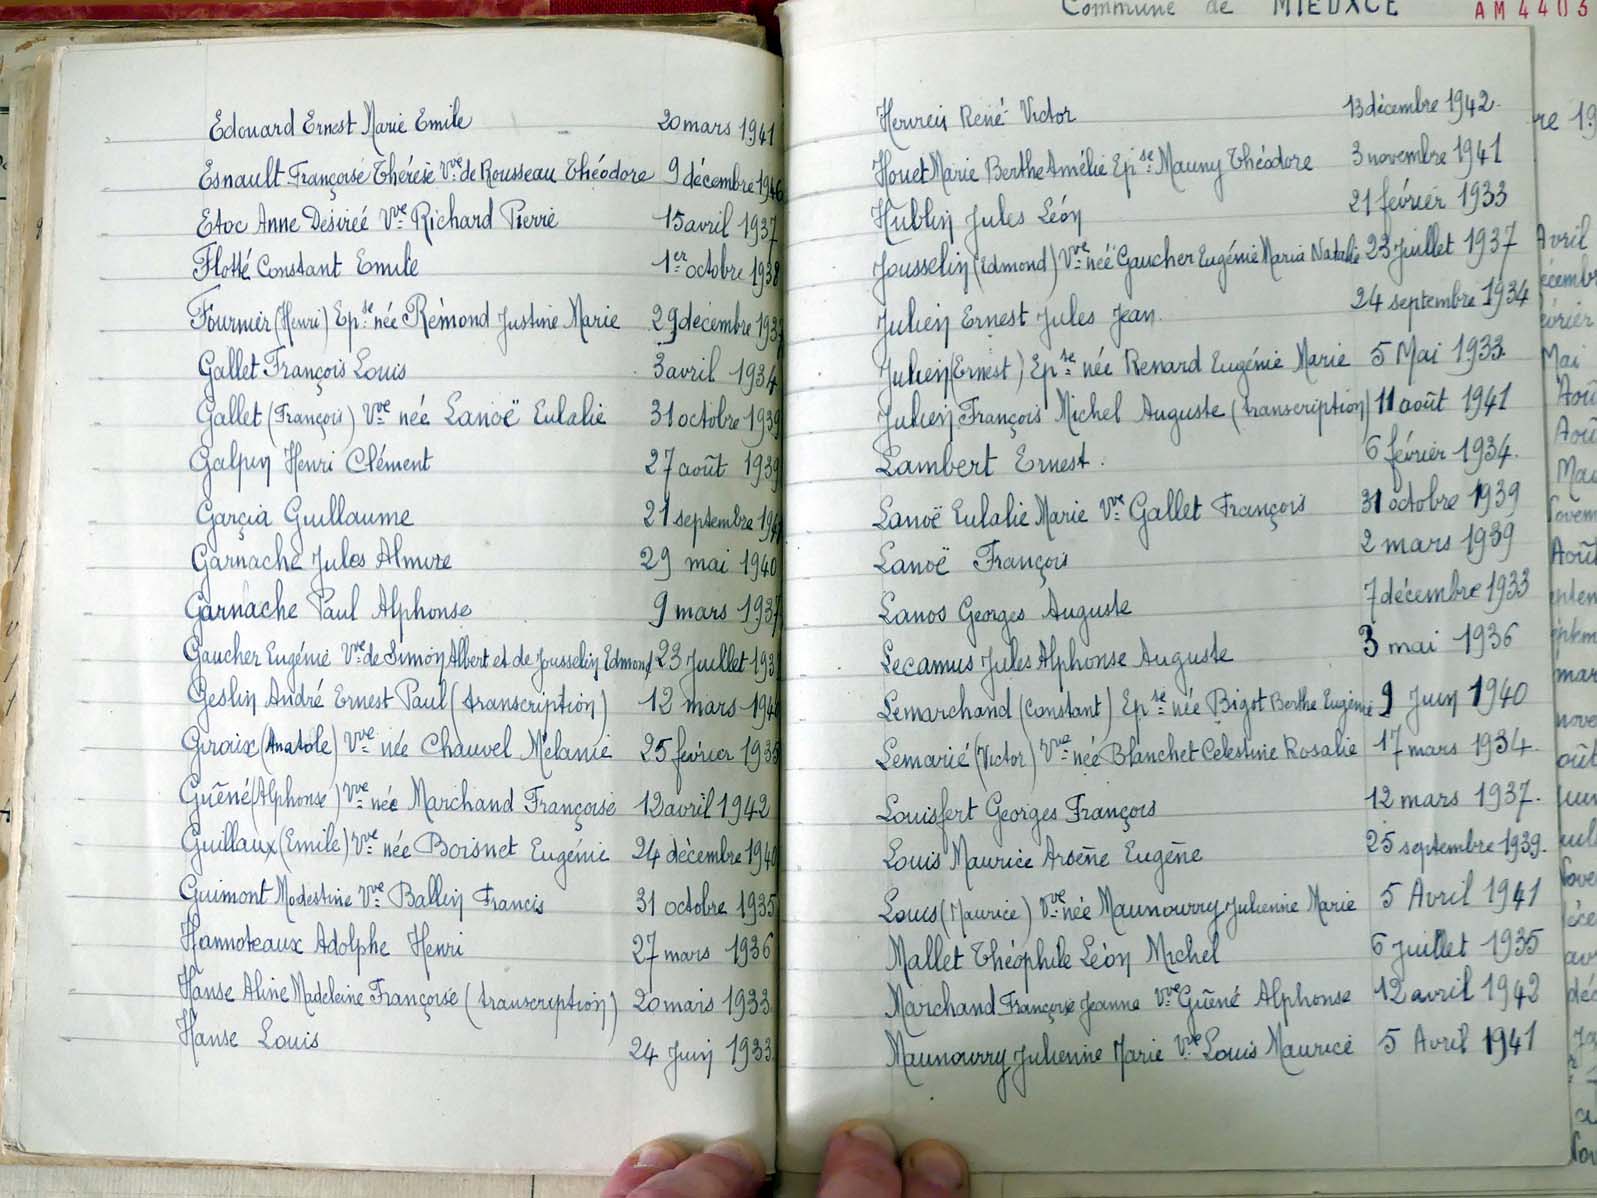 Edouard Ernest Marie Emile 20 mars 1941
Esnault Françoise Thérèse Vve de Rousseau Théodore 9 décembre 1946
Etoc Anne Desirée Vve Richard Pierre 15 avril 1937
Flotté Constant Emile 1er octobre 1938
Fournier (Henri) Epse née Rémond Justine Marie 29 décembre 193
Gallet François Louis 3 avril 1934
Gallet (François) Vve née Lanoë Eulalie 31 octobre 1939
Galpin Henri Clément 27 août 1939
Garçia Guillaume 21 septembre 194
Garnache Jules Almire 29 mai 1940
Garnache Paul Alphonse 9 mars 1937
Gaucher Eugénie Vve de Simon Albert et de Jousselin Edmond 23 Juillet 193
Geslin André Ernest Paul (transcription) 12 mars 194
Giroix (Anatole) Vve née Chauvel Mélanie 25 février 1935
Guêné (Alphonse) Vve née Marchand Françoise 12 avril 1942
Guillaux (Emile) Vve née Boisnet Eugénie 24 décembre 1940
Guimont Modestine Vve Ballin Francis 31 octobre 1935
Hannoteaux Adolphe Henri 27 mars 1936
Hanse Aline Madeleine Françoise (transcription) 20 mars 1933
Hanse Louis 24 Juin 1933
Commune de MIEUXCE AM 4403
René Victor 13 décembre 1942.
Houet Marie Berthe Amélie Epse Mauny Théodore 3 novembre 1941
Hublin Jules Léon 21 février 1933
Jousselin (Edmond) Vve née Gaucher Eugénie Maria Natalie 23 Juillet 1937
Julien Ernest Jules Jean. 24 septembre 1934
Julien (Ernest) Epse née Renard Eugénie Marie 5 Mai 1933.
Julien François Michel Auguste (transcription) 11 août 1941
Lambert Ernest. 6 février 1934.
Lanoë Eulalie Marie Vve Gallet François 31 octobre 1939
Lanoë François 2 mars 1939
Lanos Georges Auguste 7 décembre 1933
Lecamus Jules Alphonse Auguste 3 mai 1936
Lemarchand (Constant) Epse née Bigot Berthe Eugénie 9 Juin 1940
Lemarié (Victor) Vve née Blanchet Célestine Rosalie 17 mars 1934.
Louisfert Georges François 12 mars 1937.
Louis Maurice Arsène Eugène 25 septembre 1939.
Louis (Maurice) Vve née Maunourry Julienne Marie 5 Avril 1941
Mallet Théophile Léon Michel 6 juillet 1935
Marchand Françoise Jeanne Vve Guêné Alphonse 12 avril 1942
Maunourry Julienne Marie Vve Louis Maurice 5 Avril 1941